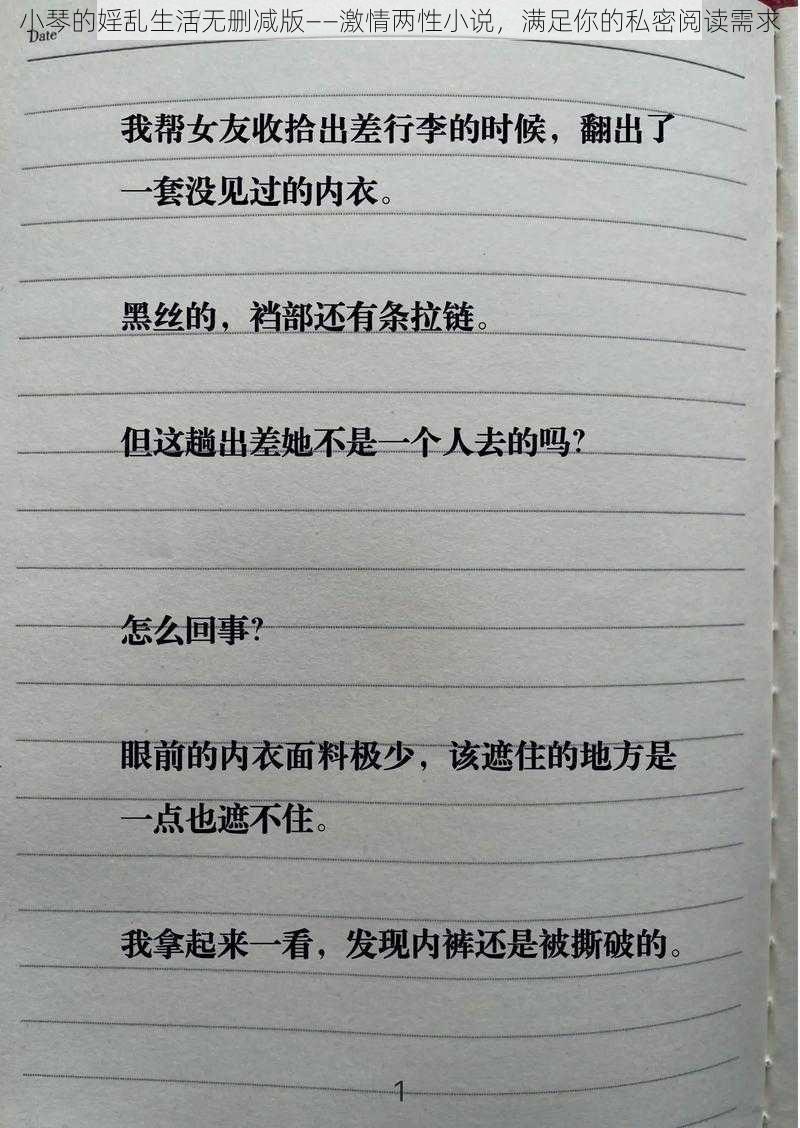 小琴的婬乱生活无删减版——激情两性小说，满足你的私密阅读需求
Date
我帮女友收拾出差行李的时候，翻出了
一套没见过的内衣。
黑丝的，裆部还有条拉链。
但这趟出差她不是一个人去的吗？
怎么回事？
眼前的内衣面料极少，该遮住的地方是
一点也遮不住。
我拿起来一看，发现内裤还是被撕破的。
1